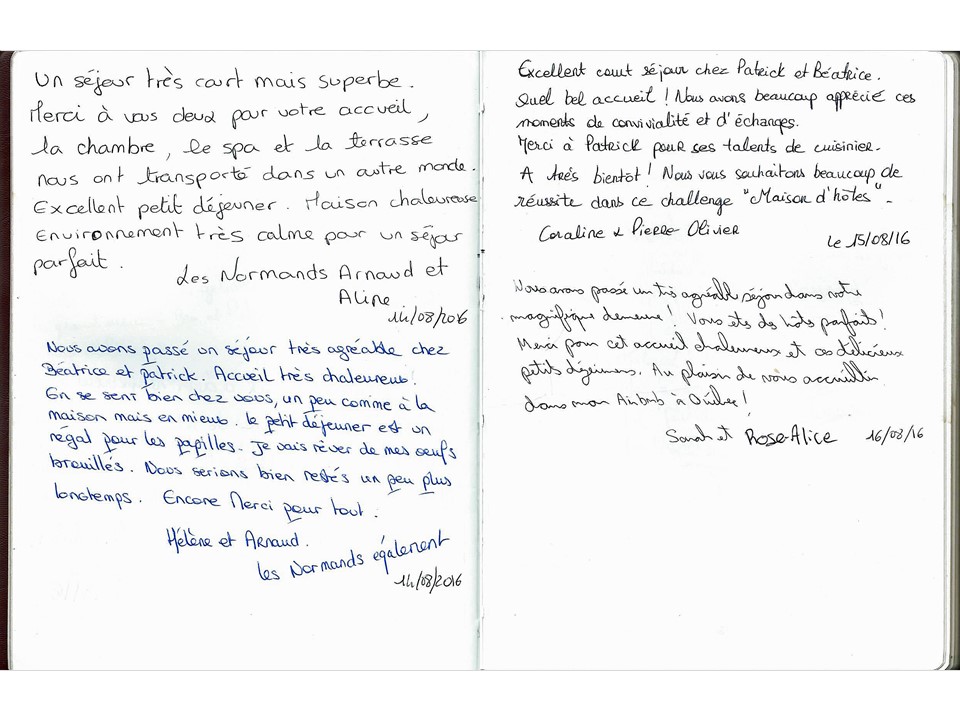 Un séjour très court mais superbe.
Merci à vous deux pour votre accueil,
la chambre, le spa et la terrasse
nous ont transporté dans un autre monde.
Excellent petit déjeuner. Maison chaleureuse
Environnement très calme pour un séjour
parfait.
Les Normands Arnaud et
Aline
14/08/2016
Nous avons passé un séjour très agréable chez
Béatrice et Patrick. Accueil très chaleureux!
On se sent bien chez vous, un peu comme à la
maison mais en mieux. le petit déjeuner est un
régal pour les papilles. Je vais rêver de mes oeufs
brouillés. Nous serions bien restés un peu plus
longtemps. Encore Merci pour tout.
Hélène et Arnaud.
les Normands également
14/08/2016
Excellent court séjour chez Patrick et Béatrice.
Quel bel accueil ! Nous avons beaucoup apprécié ces
moments de convivialité et d'échanges.
Merci à Patrick pour ses talents de cuisinier.
A très bientôt ! Nous vous souhaitons beaucoup de
réussite dans ce challenge "Maison d'hôtes".
Coraline & Pierre Olivier
le 15/08/16
Nous avons passé un très agréable séjour dans votre
magnifique demeure! Vous êts des hôts parfaits!
Merci pour cet accueil chaleureux et ces délicieux
petits déjeuners. Au plaisir de vous accueillir
dans mon Airbnb à Québec!
Sarah et Rose-Alice 16/08/16